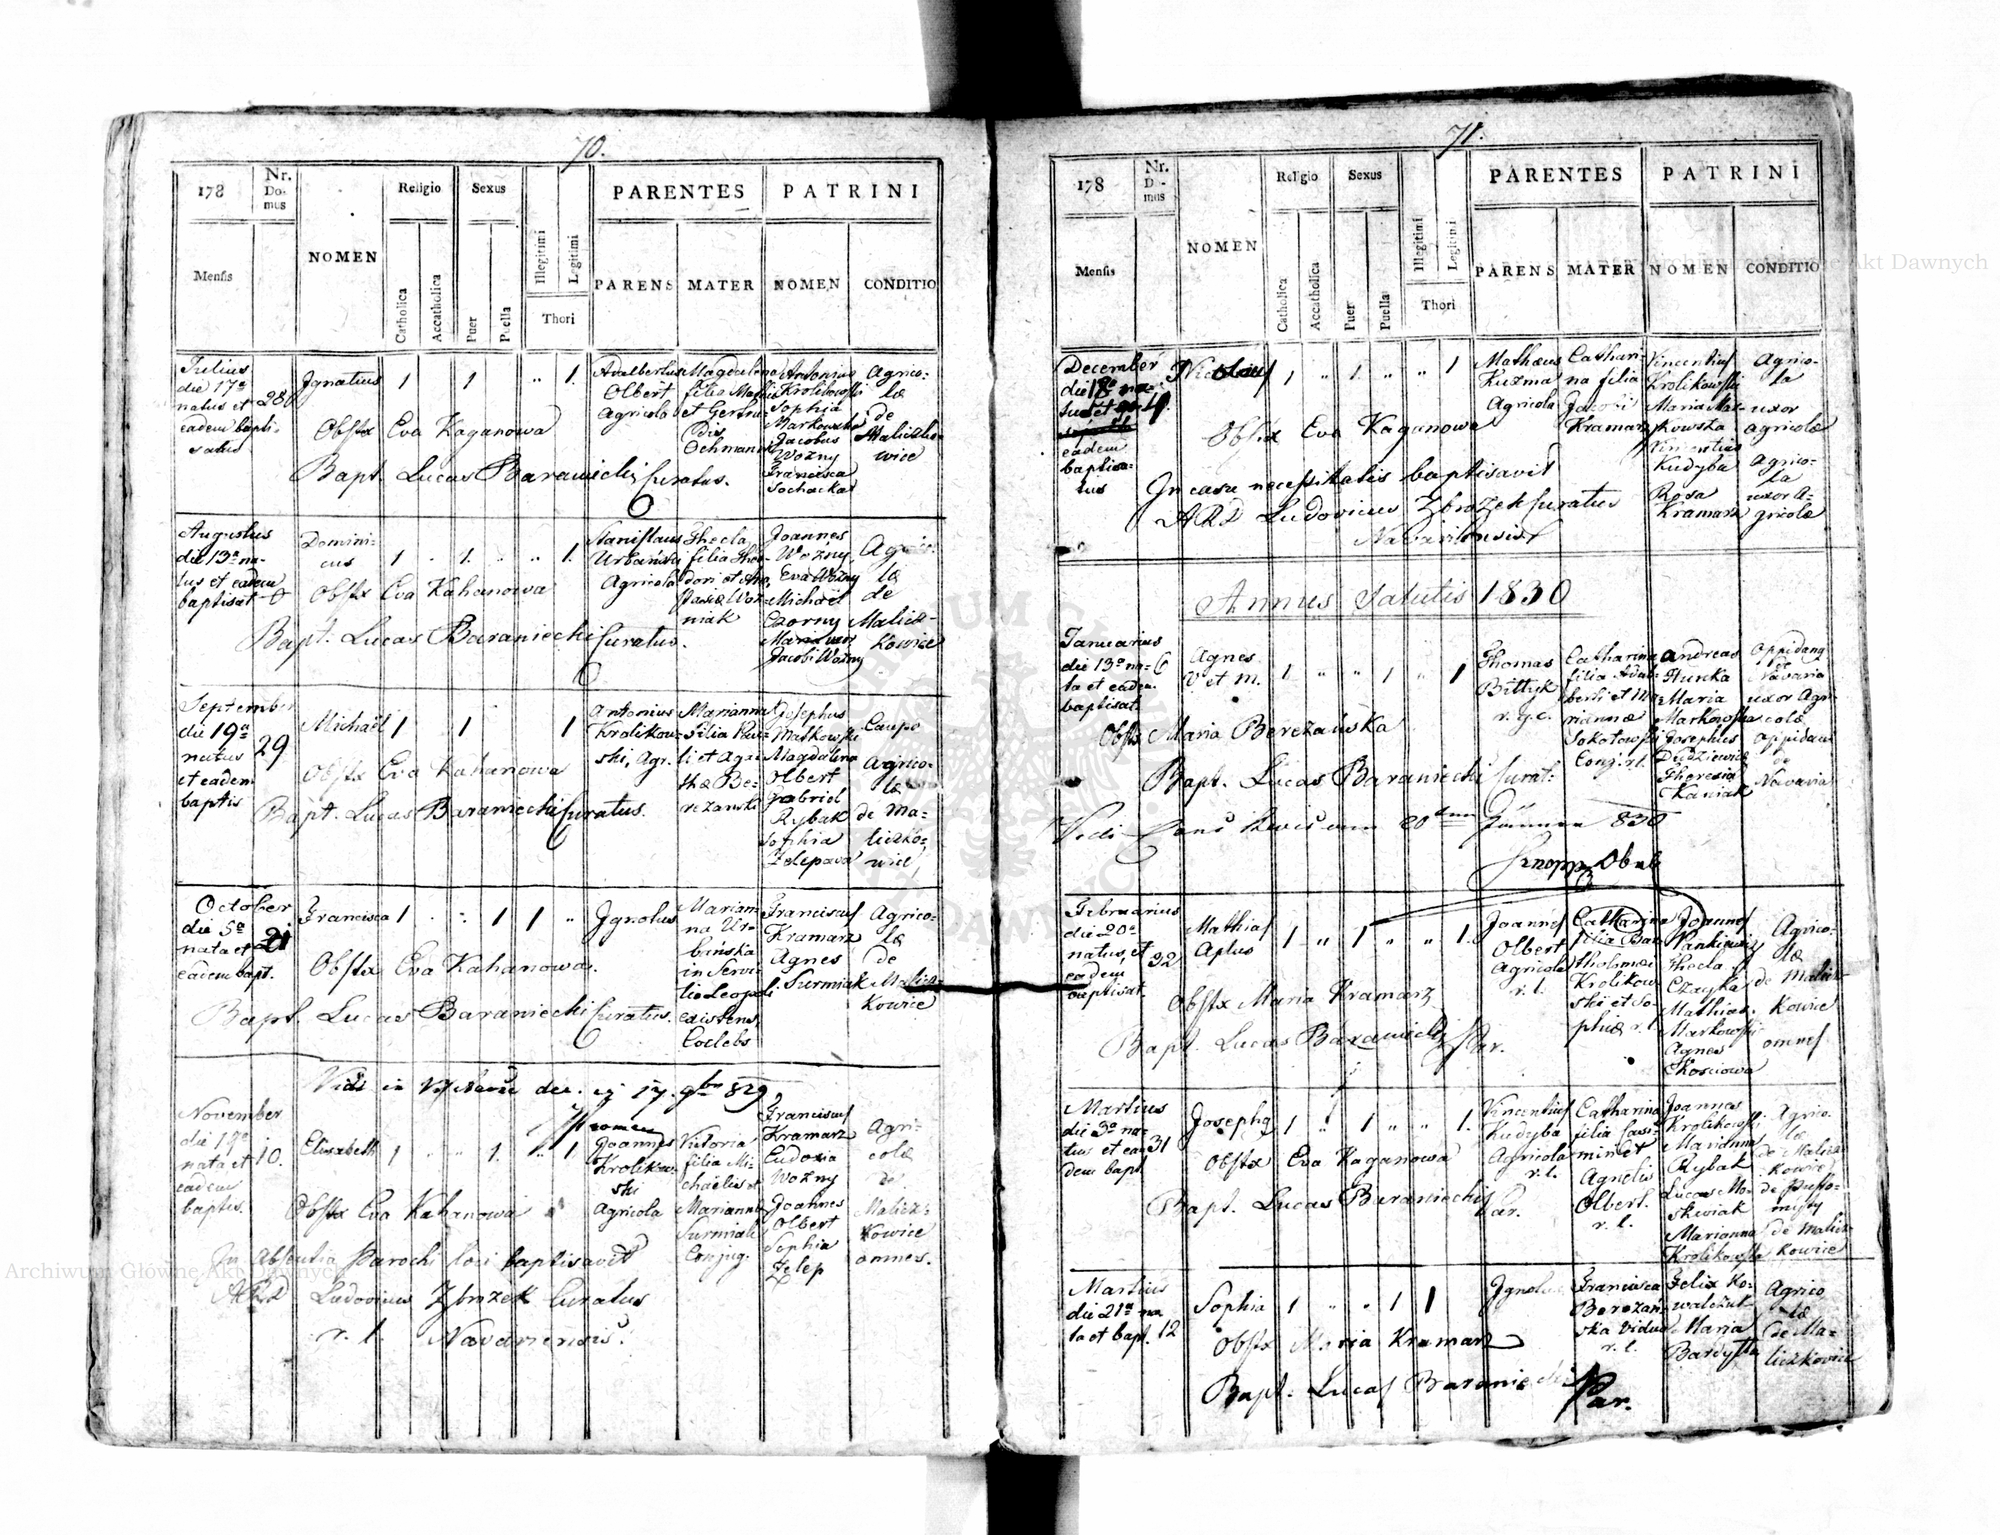 70.
178
Nr. Do-mus
NOMEN
Religio
Sexus
PARENTES
PATRINI
Mensis
Catholica
Accatholica
Puer
Puella
Illegitimi
Legitimi
Thori
PARENS
MATER
NOMEN
CONDITIO
Julius
die 17a
natus et
eadem bapti-
satus
280
Ignatius 1 1 " 1.
Adalbertus
Olbert
Agricola
Magdalena
filia
et Gertru-
dis
Ochman
Antonius
Krolikowski
Sophia
Markowska
Jacobus
Wozny
Francisca
Sochacka
Agrico-
læ
de
Maliczko-
wice
Obstx Eva Kaganowa
Bapt. Lucas Baraniecki Curatus.
Augustus
die 13a na-
tus et eadem
baptisat
Domini-
cus
1 . 1. " .. 1.
Stanislaus
Urbański
Agricola
Thecla
filia Theo-
dori et
Woz-
niak
Joannes
Wozny
Eva Wozny
Michaël
Czorny
Maria uxor
Jacobi Wozny
Agrico-
læ
de
Malicz-
kowice
Obstx Eva Kahanowa
Bapt. Lucas Baraniecki Curatus.
September
die 19a
natus
et eadem
baptis
29
Michaël 1 1 1
Antonius
Krolikow-
ski, Agr.
Marianna
filia Pau-
li et Aga-
thæ Be-
rezanska
Josephus
Markowski
Magdalena
Olbert
Gabriel
Rybak
Sophia
Zelepowa
Caupo
Agrico-
læ
de Ma-
liczko-
wice
Obstx Eva Kahanowa
Bapt. Lucas Baraniecki Curatus.
October
die 5a
nata et
eadem bapt.
21
Francisca 1 . " 1 1 "
Ignotus
Marian-
na Ur-
bańska
in Servi-
tio Leopoli
existens,
Coelebs
Franciscus
Kramarz
Agnes
Surmiak
Agrico-
læ
de
Malicz-
kowice
Obstx Eva Kahanowa.
Bapt. Lucas Baraniecki Curatus.
Vidi in 17. 9br 829
November
die 19a
nata et
eadem
baptis.
10.
Elisabeth 1 " " 1. " 1
Joannes
Krolikow-
ski
Agricola
Victoria
filia Mi-
chaëlis et
Mariannæ
Surmiak
Conjug.
Franciscus
Kramarz
Eudoxia
Wozny
Joannes
Olbert
Sophia
Zelep
Agri-
colæ
de
Malicz-
kowice
omnes.
Obstx Eva Kahanowa
In absentia Parochi loci baptisavit
ARD Ludovicus Zbrozek Curatus
r. l. Navariensis.
71.
178
Nr. Do-mus
NOMEN
Religio
Sexus
PARENTES
PATRINI
Mensis
Catholica
Accatholica
Puer
Puella
Illegitimi
Legitimi
Thori
PARENS
MATER
NOMEN
CONDITIO
December
die 18a na-
tus et
eadem
baptisa-
tus
19.
Nicolaus 1 " 1. " " 1
Mathæus
Kuzma
Agricola
Cathari-
na filia
Jacobi
Kramarz
Vincentius
Krolikowski
Maria Mar-
kowska
Vincentius
Kudyba
Rosa
Kramarz
Agrico-
la
uxor
agricolæ
Agrico-
la
uxor A-
gricolæ
Obstx Eva Kaganowa
In casu necessitatis baptisavit
ARD Ludovicus Zbrozek Curatus
Navariensis
Annus Salutis 1830
Januarius
die 13a na-
ta et eadem
baptisat
6
Agnes
V et M.
1 " " 1 " 1
Thomas
Biłłyk
r. g. c.
Catharina
filia Adal-
berti et Ma-
riannæ
Sokołowski
Conj. r. l.
Andreas
Hunka
Maria
Markowska
Josephus
Dudziewicz
Theresia
Kaniak
Oppidanus
de
Navaria
uxor Agri-
colæ
Oppidani
de
Navaria
Obstx Maria Berezańska
Bapt. Lucas Baraniecki Curat.
Vidi 20 830
Februarius
die 20a
natus, et
eadem
baptisat.
32
Mathias
Aplus
1 " 1 " " 1.
Joannes
Olbert
Agricola
r. l.
Catharina
filia Bar-
tholomæi
Krolikow-
ski et So-
phiæ r. l.
Joannes
Pankiewicz
Thecla
Czayka
Mathias
Markowski
Agnes
Kosciowa
Agrico-
læ
de Malicz-
kowice
omnes
Obstx Maria Kramarz
Bapt. Lucas Baraniecki Par.
Martius
die 3a na-
tus et ea-
dem bapt.
31
Josephq 1 " 1 " " 1.
Vincentius
Kudyba
Agricola
r. l.
Catharina
filia Casi-
miri et
Agnetis
Olbert.
r. l.
Joannes
Krolikowski
Marianna
Rybak
Lucas Mo-
skwiak
Marianna
Krolikowska
Agrico-
læ
de Malicz-
kowice
de Pusto-
myty
de Malicz-
kowice
Obstx Eva Kaganowa
Bapt. Lucas Baraniecki Par.
Martius
die 21a na
ta et bapt.
12
Sophia 1 " " 1 1
Ignotus
Francisca
Berezan-
ska vidua
r. l.
Felix Ko-
walczuk
Maria
Bardysta
Agrico
læ
de Ma-
liczkowice
Obstx Maria Kramarz
Bapt. Lucas Baraniecki Par.
Archiwum Główne Akt Dawnych
Archiwum Główne Akt Dawnych